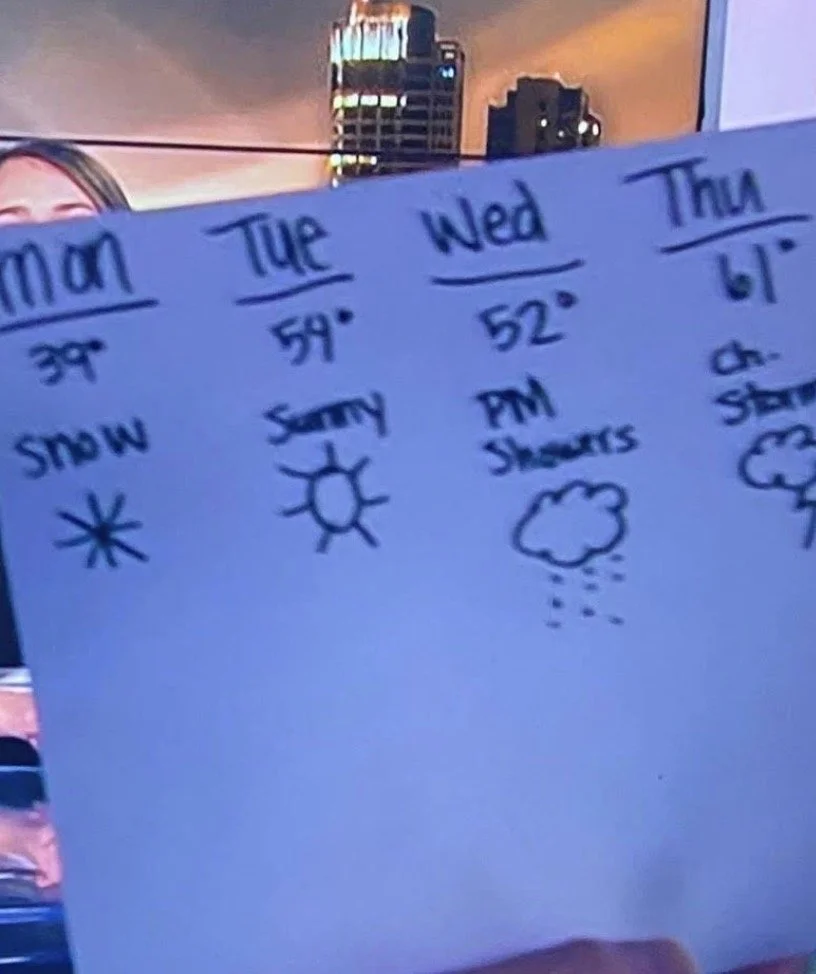 Mon Tue Wed Thu
39° 54° 52° 61°
Snow Sunny PM Ch.
Showers Storm